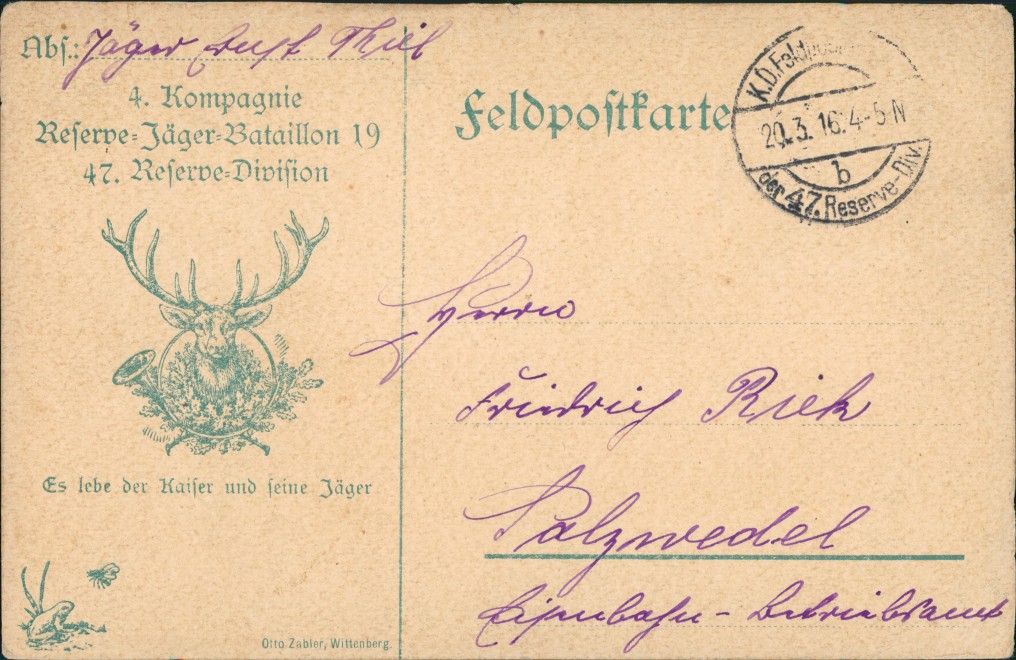 Abs.: Jäger Ernst Thiel
4. Kompagnie
Reserve-Jäger-Bataillon 19
47. Reserve-Division
Es lebe der Kaiser und seine Jäger
Otto Zabler, Wittenberg.
Feldpostkarte
K.D. Feldpost
20.3.16. 4-5 N
b
der 47. Reserve-Div.
Herrn
Friedrich Riek
Salzwedel
Eisenbahn-Betriebsamt